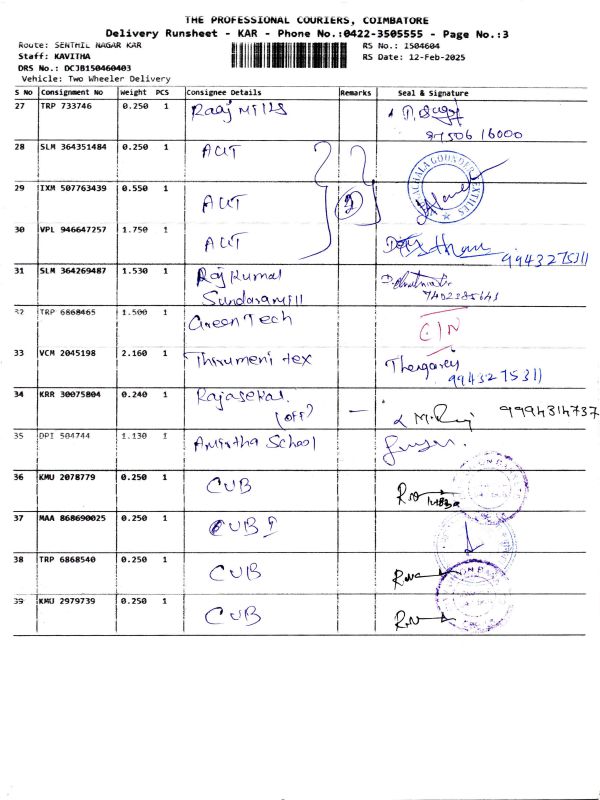 THE PROFESSIONAL COURIERS, COIMBATORE
Delivery Runsheet - KAR - Phone No.:0422-3505555 - Page No.:3
Route: SENTHIL NAGAR KAR
RS No.: 1504604
Staff: KAVITHA
RS Date: 12-Feb-2025
DRS No.: DCJB150460403
Vehicle: Two Wheeler Delivery
S No Consignment No Weight PCS Consignee Details Remarks Seal & Signature
27 TRP 733746 0.250 1 Raaj Mills
9750616000
28 SLM 364351484 0.250 1 AUT
29 IXM 507763439 0.550 1 AUT
30 VPL 946647257 1.750 1 AUT
9943275311
31 SLM 364269487 1.530 1 Raj Kumar
Sundaram
32 TRP 6868465 1.500 1 Green Tech
33 VCM 2045198 2.160 1 Thirumeni tex
9943275311
34 KRR 30075804 0.240 1 Rajasekar
(off) — 9994314737
35 DPI 504744 1.130 1 Amirtha School
36 KMU 2078779 0.250 1 CUB
37 MAA 868690025 0.250 1 CUB
38 TRP 6868540 0.250 1 CUB
39 KMU 2979739 0.250 1 CUB